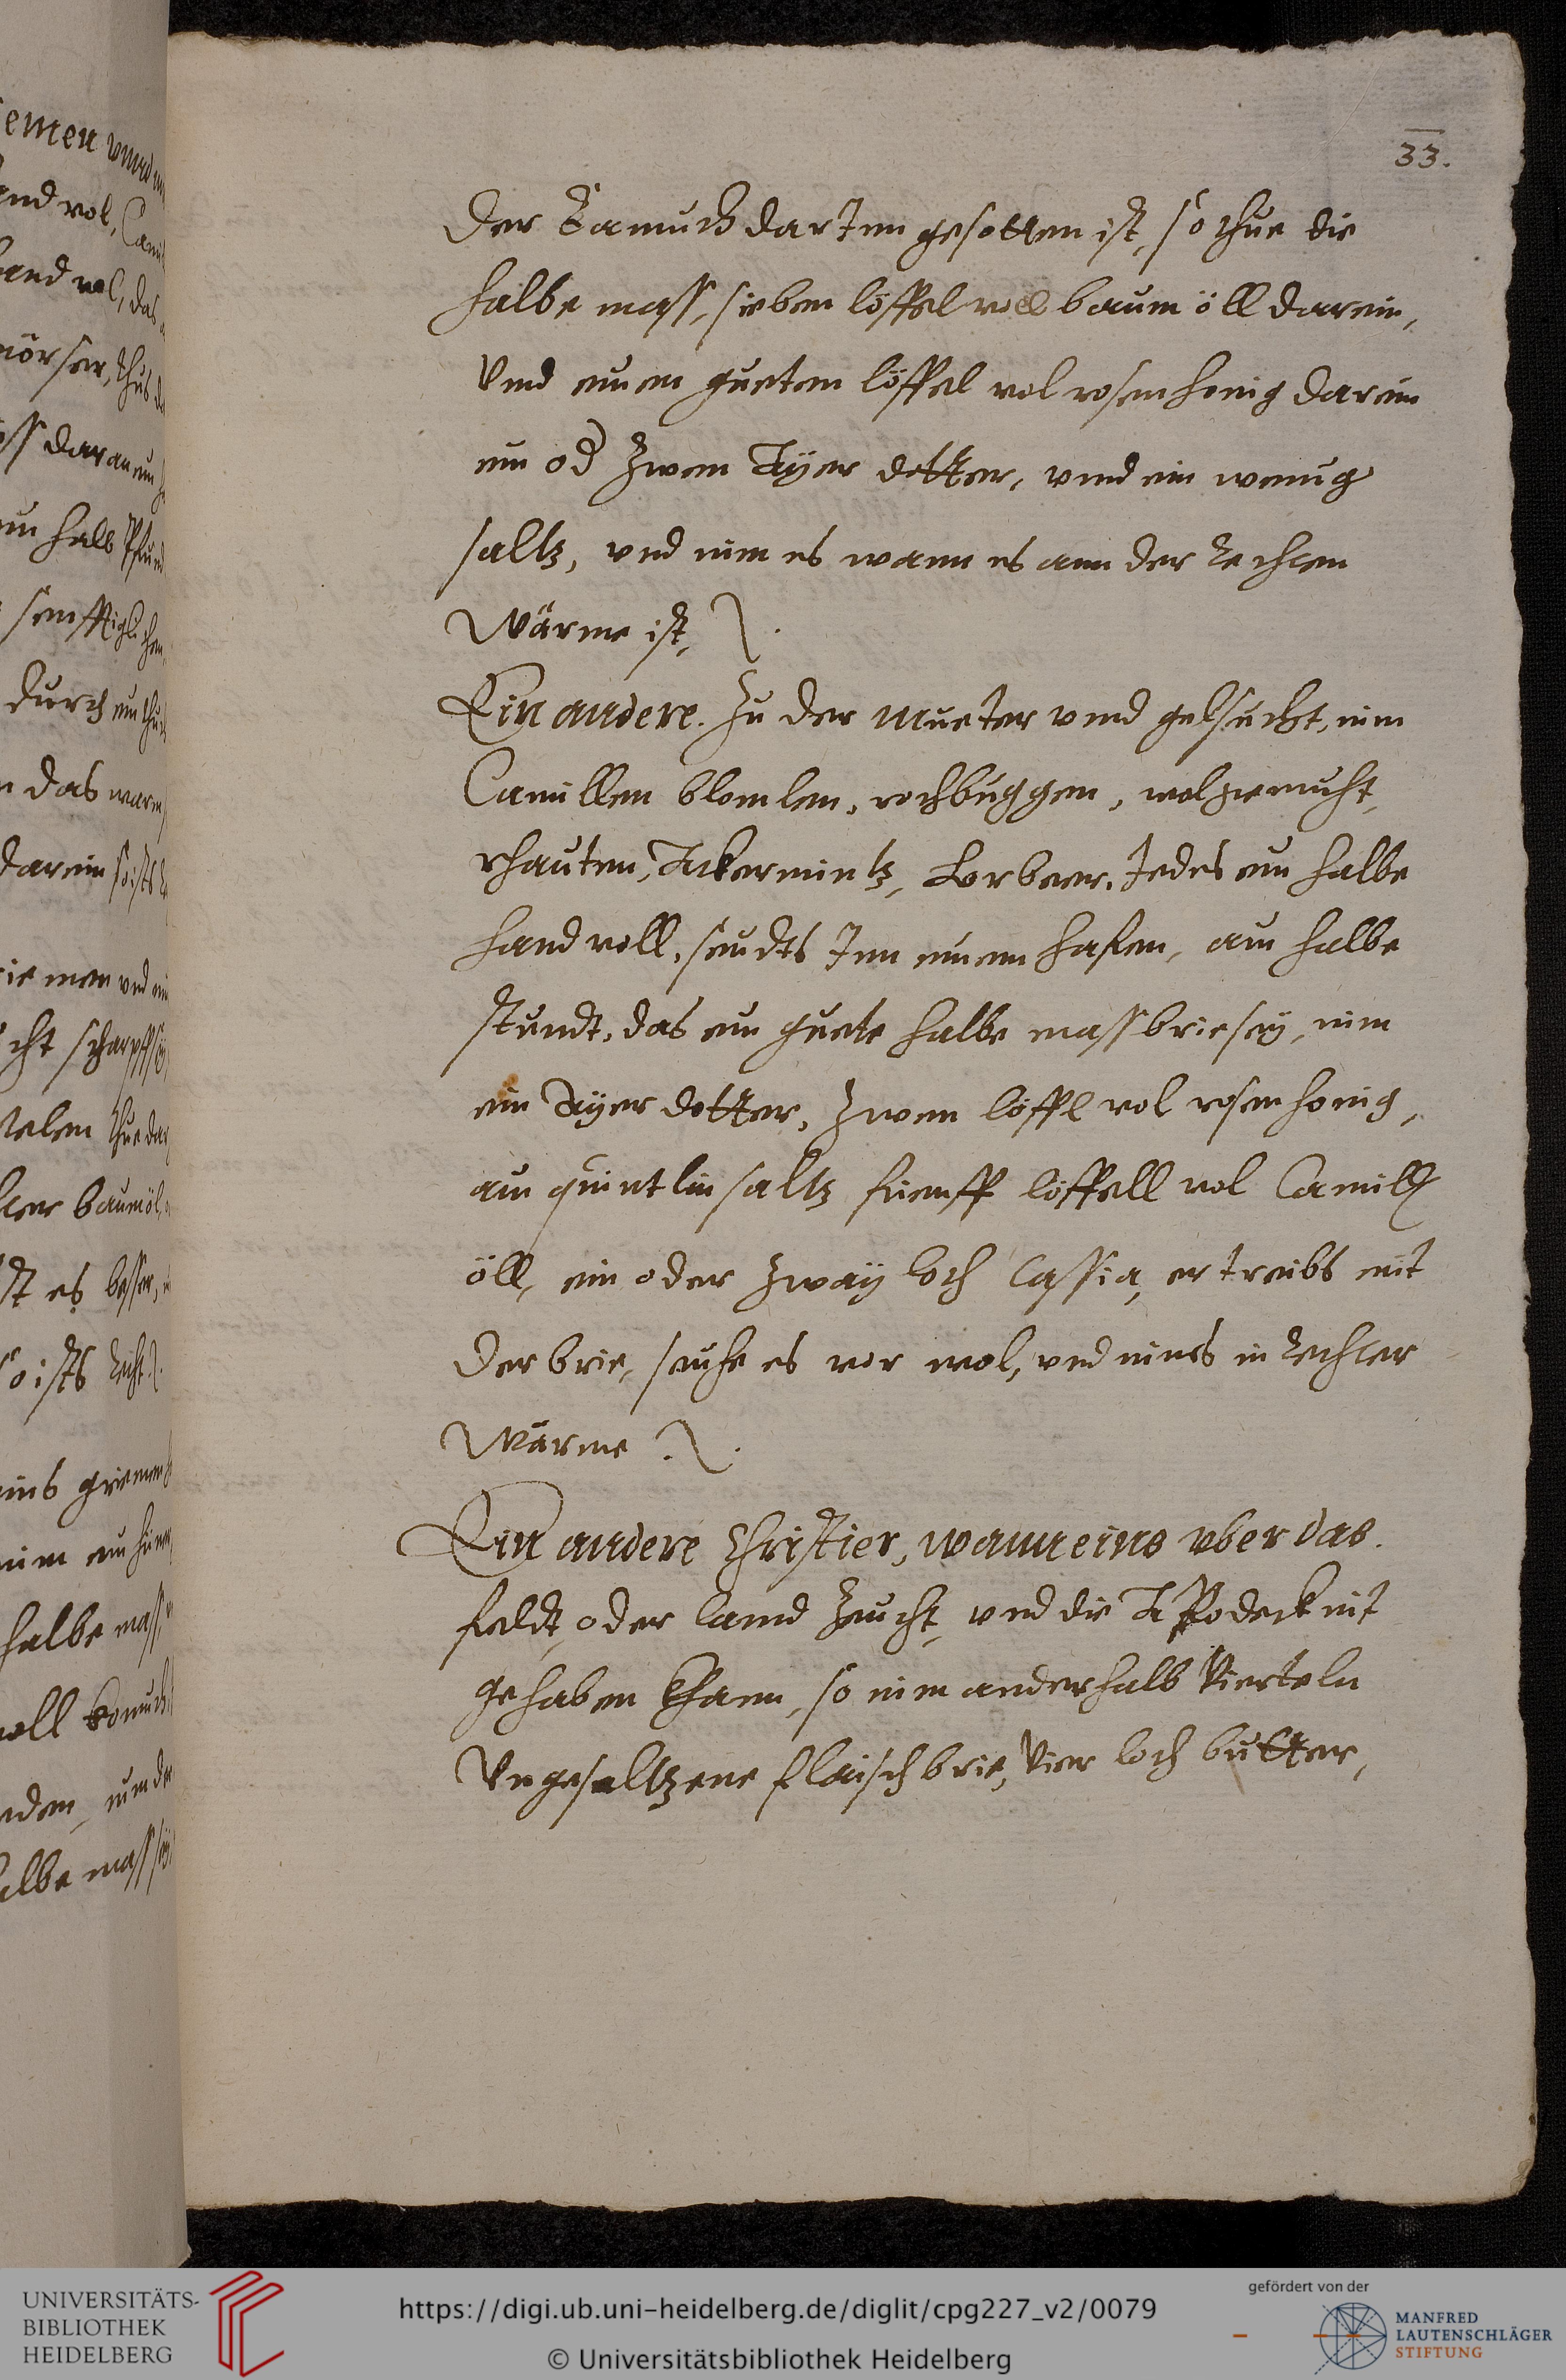 33.
Der Kamuch darInn gesotten ist, so thue die
halbe mass, sieben löffel voll baum öll darein,
Vnd einen gueten löffel vol rosenhonig darein
ein od zwen Ayer dotter, vnnd ein wenig
saltz, vnd nim es wann es ann der rechten
Wärme ist,
Ein andere. Zu der Mueter vnnd gelsucht, nim
Camillen blomlen, rochbuggen, wolgemuth,
rhauten, Ackermintz, Lorbeer, Jedes ein halbe
hand voll, seudts Inn einem hafen, ain halbe
stundt, das ein guete halbe mass brie sey, nim
ein Ayer dotter, zwen löffl vol rosenhonig,
ain quintlin saltz fünff löffell vol Camill
öll, ein oder zway loth Cassia, ertreibs mit
der brie, seuhe es vor wol, vnd nims in rechter
Wärme
Ein andere Christier, wann eins vber das
feldt, oder Lannd zeucht, vnd die Appodeck nit
gehaben khann, so nim anderhalb Vierteln
Vngesaltzene flaischbrie, Vier loth butter,
UNIVERSITÄTS-
BIBLIOTHEK
HEIDELBERG
https://digi.ub.uni-heidelberg.de/diglit/cpg227_v2/0079
© Universitätsbibliothek Heidelberg
gefördert von der
MANFRED
LAUTENSCHLÄGER
STIFTUNG